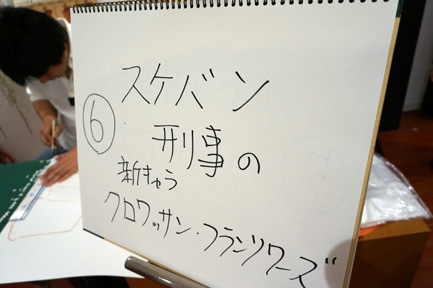 スケバン
⑥
刑事の
新きゅう
クロワッサン・フランソワーズ